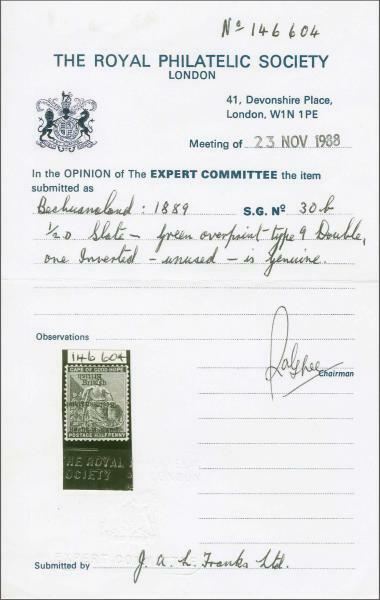 Nº 146 604
THE ROYAL PHILATELIC SOCIETY
LONDON
41, Devonshire Place,
London, W1N 1PE
Meeting of 23 NOV 1988
In the OPINION of The EXPERT COMMITTEE the item
submitted as
Bechuanaland : 1889 S.G. Nº 30b
½D Slate – green overprint type 9 Double,
one Inverted – unused – is genuine.
Observations
146 604
Chairman
CAPE OF GOOD HOPE
British
POSTAGE HALFPENNY
THE ROYAL
SOCIETY
Submitted by J. A. L. Franks Ltd.